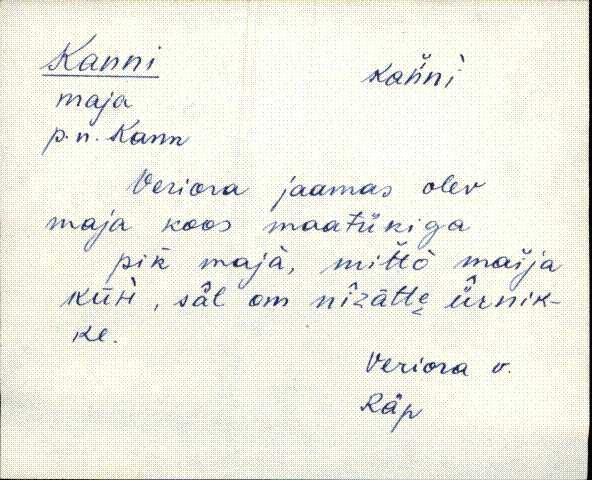 Kanni
kan̆nì
maja
p.n. Kann
Veriora jaamas olev
maja koos maatükiga
pik̄ majà, mit̆tò maija
sä̂l om
ke.
Veriora v.
Räp